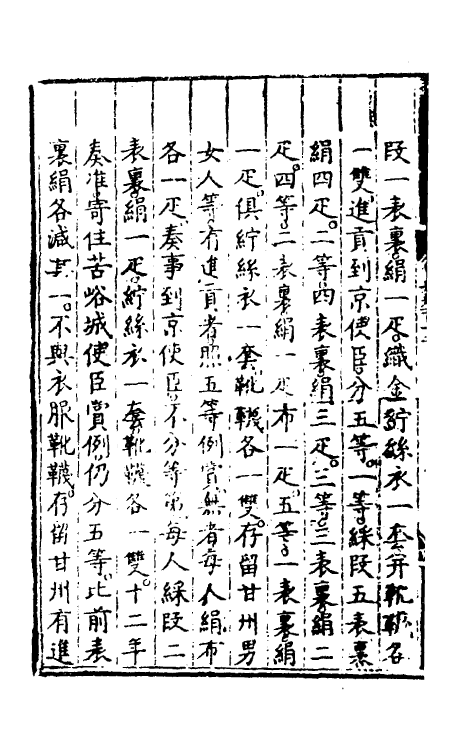 段一表裏絹一疋織金紵絲衣一套并靴韈各
一雙進貢到京使臣分五等一等綵段五表裏
絹四疋二等四表裏絹三疋三等三表裏絹二
疋四等二表裏絹一疋布一疋五等一表裏絹
一疋俱紵絲衣一套靴韈各一雙存留甘州男
女人等有進貢者照五等例賞無者每人絹布
各一疋奏事到京使臣不分等第每人綵段二
表裏絹一疋紵絲衣一套靴韈各一雙十二年
奏准寄住苦峪城使臣賞例仍分五等比前表
裏絹各減其一不與衣服靴韈存留甘州有進